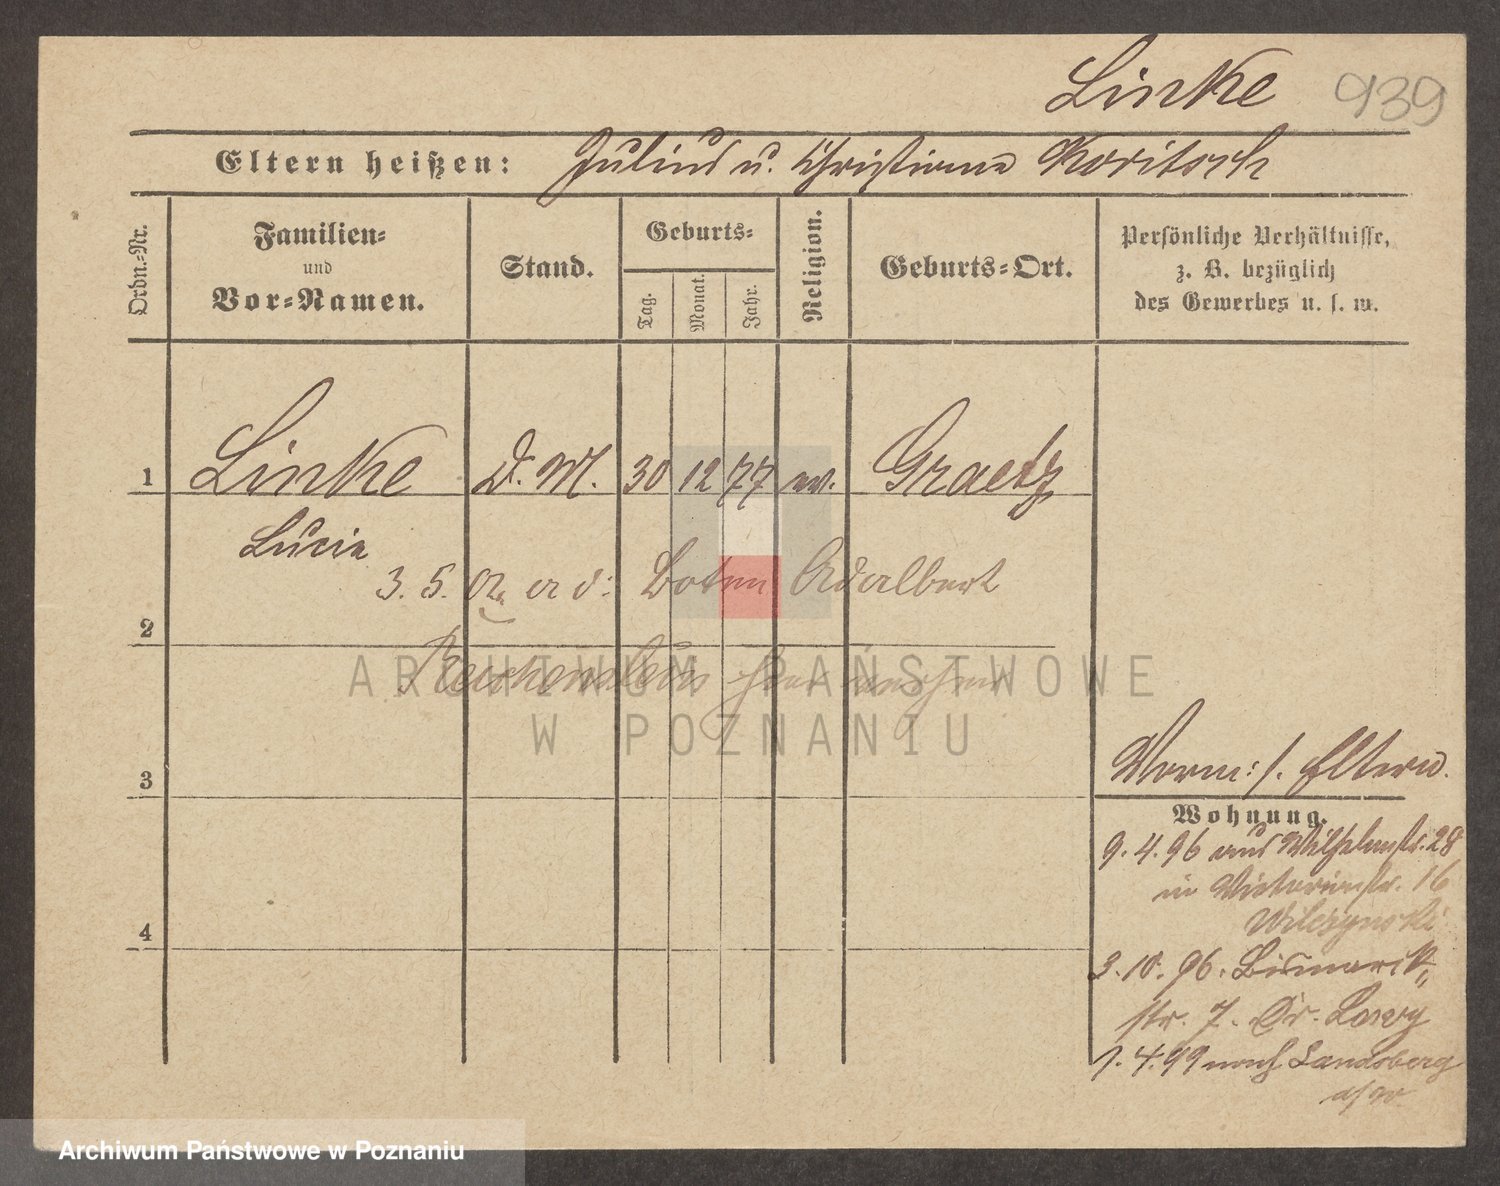 Linke 939
Eltern heißen: Julius u. Christiane Koritsch
Ordn.-Nr.
Familien-
und
Vor-Namen.
Stand.
Geburts-
Tag.
Monat.
Jahr.
Religion.
Geburts-Ort.
Persönliche Verhältnisse,
z. B. bezüglich
des Gewerbes u. s. w.
1 Linke D. M. 30 12 77 ev. Graetz
Lucie
3. 5. 02 Boten Adalbert
2
3
4
Vorm: s. Eltern.
Wohnung.
9. 4. 96 aus Wilhelmstr. 28
in Victoriastr. 16
Wilczynski
3. 10. 96. Bismarck-
str. 7. Dr. Lewy
1. 4. 99 nach Landsberg
a/W
ARCHIWUM PAŃSTWOWE
W POZNANIU
Archiwum Państwowe w Poznaniu